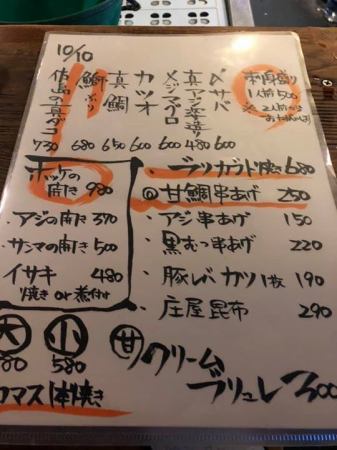 10/10
刺身盛り
1人前500
※2人前から
〆サバ 480
真アジ 600
メジマグロ 600
カツオ 600
真鯛 650
鰤ぶり 680
佐島の真ダコ 730
ホッケの開き 980
・アジの開き 370
・サンマの開き 500
イサキ 480
焼き or 煮付け
・ブリカブト焼き 680
甘鯛串あげ 250
・アジ串あげ 150
・黒むつ串あげ 220
・豚レバカツ1枚 190
・庄屋昆布 290
大 小 580
カマス1本焼き
甘 クリームブリュレ 300